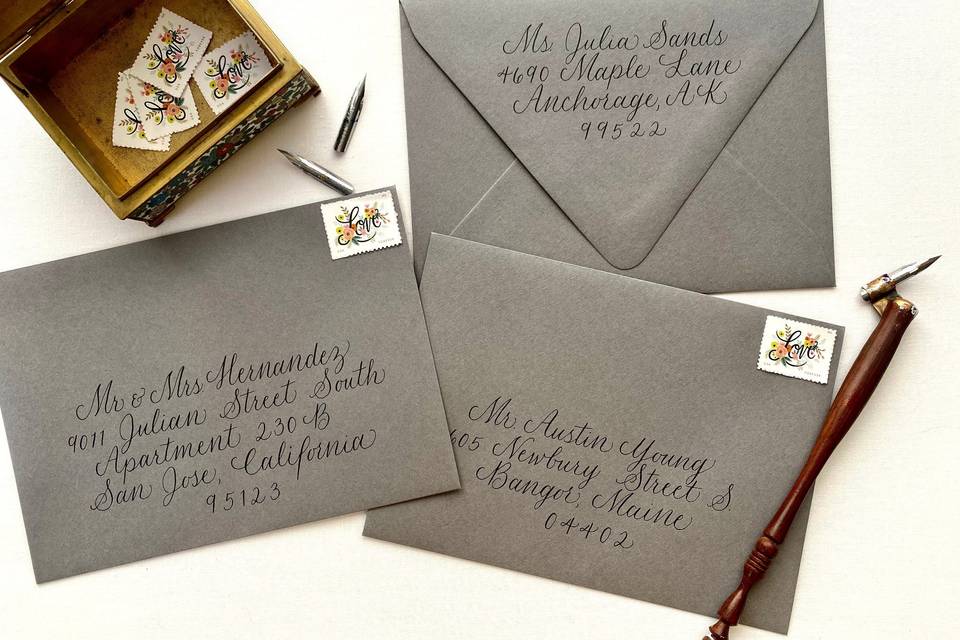 Ms. Julia Sands
4690 Maple Lane
Anchorage, AK
99522
Love
Love
Love
Love
Mr & Mrs Hernandez
9011 Julian Street South
Apartment 230 B
San Jose, California
95123
Love
FOREVER
Mr. Austin Young
Newbury Street S.
Bangor, Maine
04402